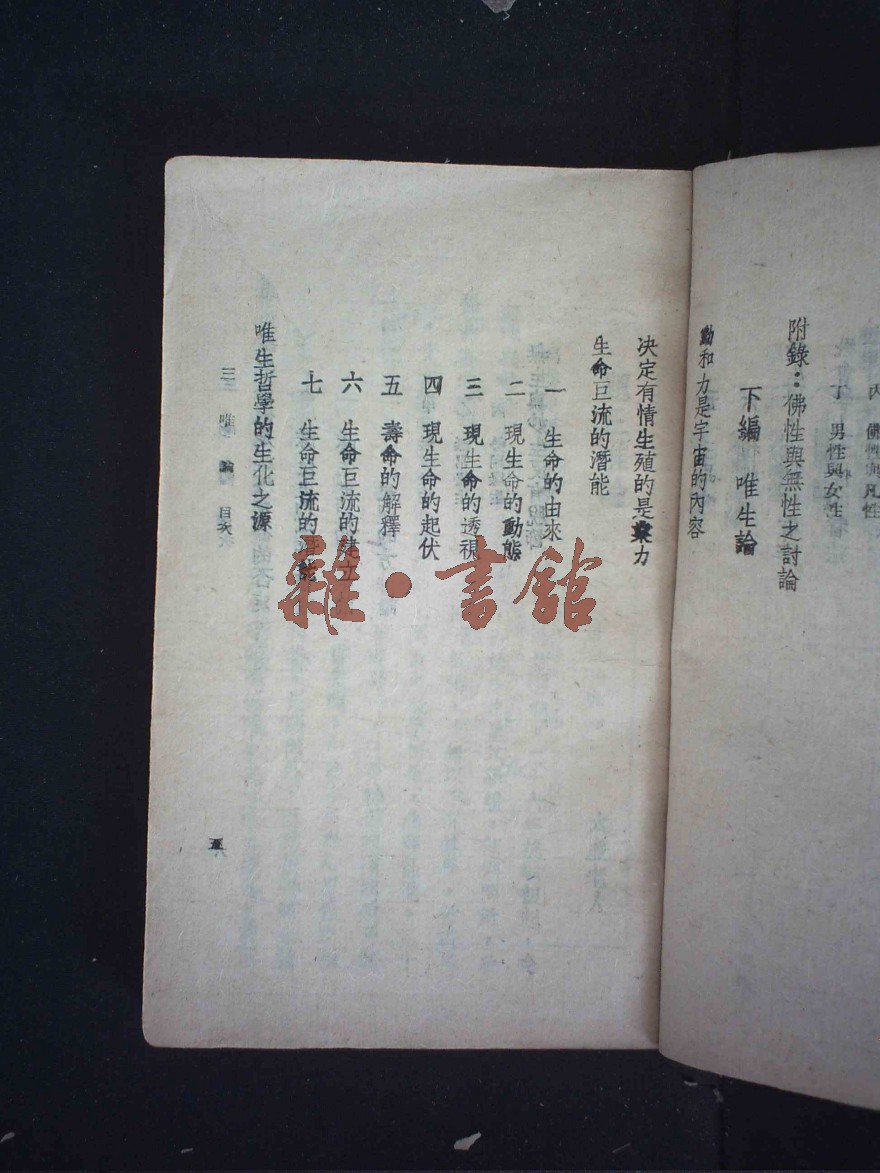 丙 佛性與凡性
丁 男性與女性
附錄：佛性與無性之討論
下編 唯生論
動和力是宇宙的內容
决定有情生殖的是業力
生命巨流的潛能
一 生命的由來
二 現生命的動態
三 現生命的透視
四 現生命的起伏
五 壽命的解釋
六 生命巨流的建立
七 生命巨流的潛能
唯生哲學的生化之源
三唯論 目次
雜·書館